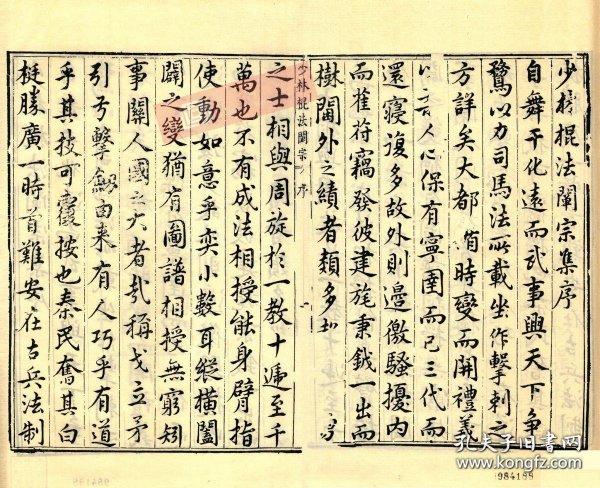 少林棍法闡宗集序
自舞干化遠而武事興天下争
騖以力司馬法所載坐作擊刺之
方詳矣大都 時變而開禮義
人心保有寧圉而已三代而
還寖復多故外則邊徼騷擾内
而萑苻竊發彼建旄秉鉞一出而
樹閫外之績者類多
少林棍法闡宗 序
之士相與周旋於一教十遞至千
萬也不有成法相授能身臂指
使動如意乎奕小數耳縱橫闔
闢之變猶有圖譜相授無窮矧
事關人國之大者哉稱戈立矛
引弓擊劍由來有人巧乎有道
乎其技可覆按也秦民奮其白
梃勝廣一時首難安在古兵法制
孔夫子旧书网
www.kongfz.com
984188